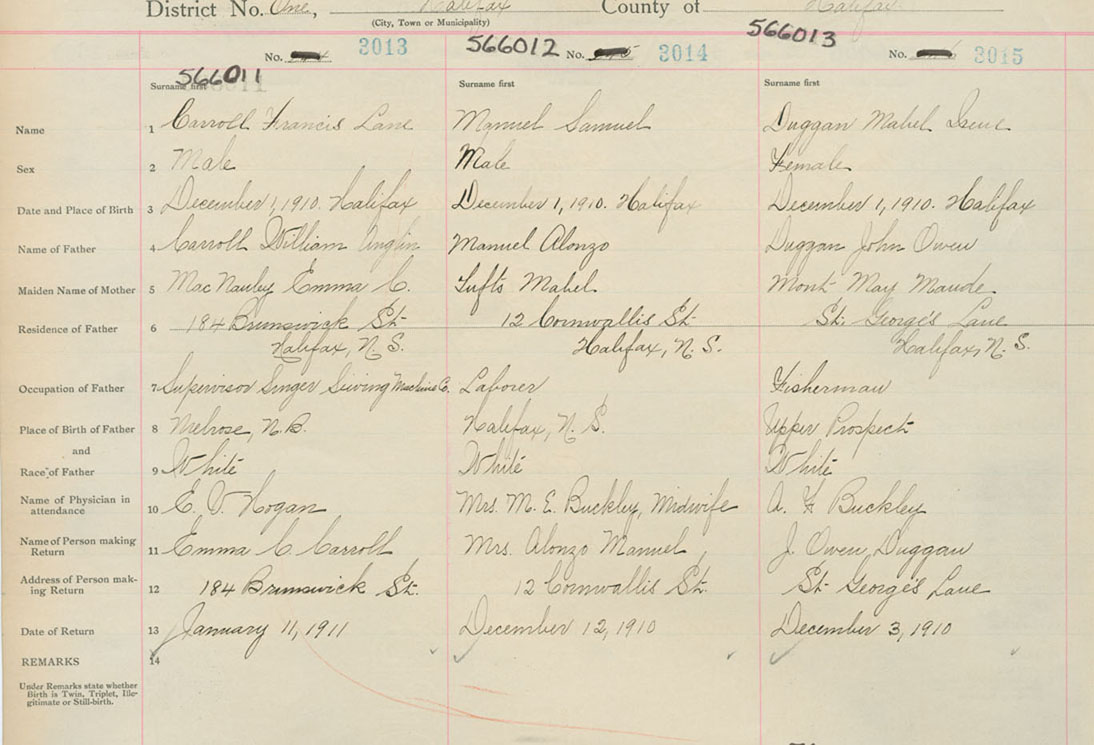 District No. One, Halifax County of Halifax
(City, Town or Municipality)
No. 3013 566012 No. 3014 566013 No. 3015
566011
Surname first Surname first Surname first
Name 1 Carroll Francis Lane Manuel Samuel Duggan Mabel Irene
Sex 2 Male Male Female
Date and Place of Birth 3 December 1, 1910. Halifax December 1, 1910. Halifax December 1, 1910. Halifax
Name of Father 4 Carroll William Anglin Manuel Alonzo Duggan John Owen
Maiden Name of Mother 5 Emma C. Tufts Mabel Mont May Maude
Residence of Father 6 184 Brunswick St. 12 Cornwallis St. St. George's Lane
Halifax, N. S. Halifax, N. S. Halifax, N. S.
Occupation of Father 7 Supervisor Singer Sewing Machine Co. Laborer Fisherman
Place of Birth of Father 8 Melrose, N.B. Halifax, N. S. Upper Prospect
and
Race of Father 9 White White White
Name of Physician in
attendance 10 E. V. Hogan Mrs. M. E. Buckley, Midwife A. F Buckley
Name of Person making
Return 11 Emma C. Carroll Mrs. Alonzo Manuel J. Owen Duggan
Address of Person mak-
ing Return 12 184 Brunswick St. 12 Cornwallis St. St George's Lane
Date of Return 13 January 11, 1911 December 12, 1910 December 3, 1910
REMARKS 14
Under Remarks state whether
Birth is Twin, Triplet, Ille-
gitimate or Still-birth.